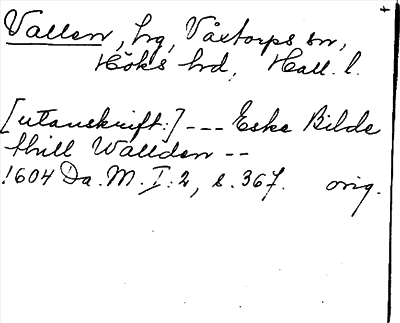 Vallen, hg, Våxtorps sn,
Höks hd, Hall. l.
[utanskrift:] --- Eske Bilde
thill Wallden --
1604 Da. M. I:2, s. 367. orig.